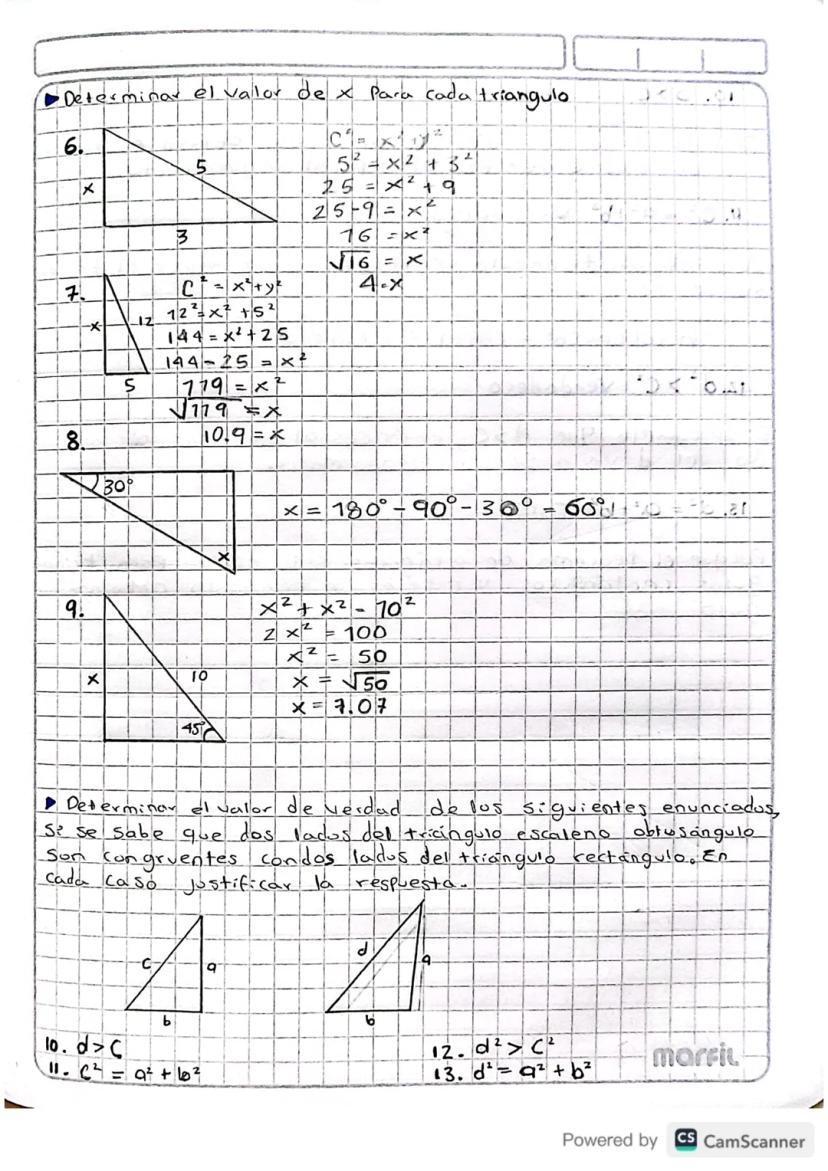 Determinar el valor de x para cada triangulo
6.
5
x
3
C² = x² + y²
5² = x² + 3²
25 = x² + 9
25-9 = x²
16 = x²
√16 = x
4=x
7.
x
12
5
C² = x²+y²
12²=x² +5²
144=x²+25
144-25 = x²
119 = x²
√119 = x
10.9 = x
8.
30°
x
x = 180° - 90° - 30° = 60°
9.
x
10
45°
x² + x² = 10²
2x² = 100
x² = 50
x = √50
x = 7.07
Determinar el valor de verdad de los siguientes enunciados,
si se sabe que dos lados del triángulo escaleno obtusángulo
son congruentes con dos lados del triángulo rectángulo. En
cada caso justificar la respuesta.
c
a
b
d
a
b
10. d>c
11. c² = a² + b²
12. d² > c²
13. d² = a² + b²
marfil
Powered by CS CamScanner